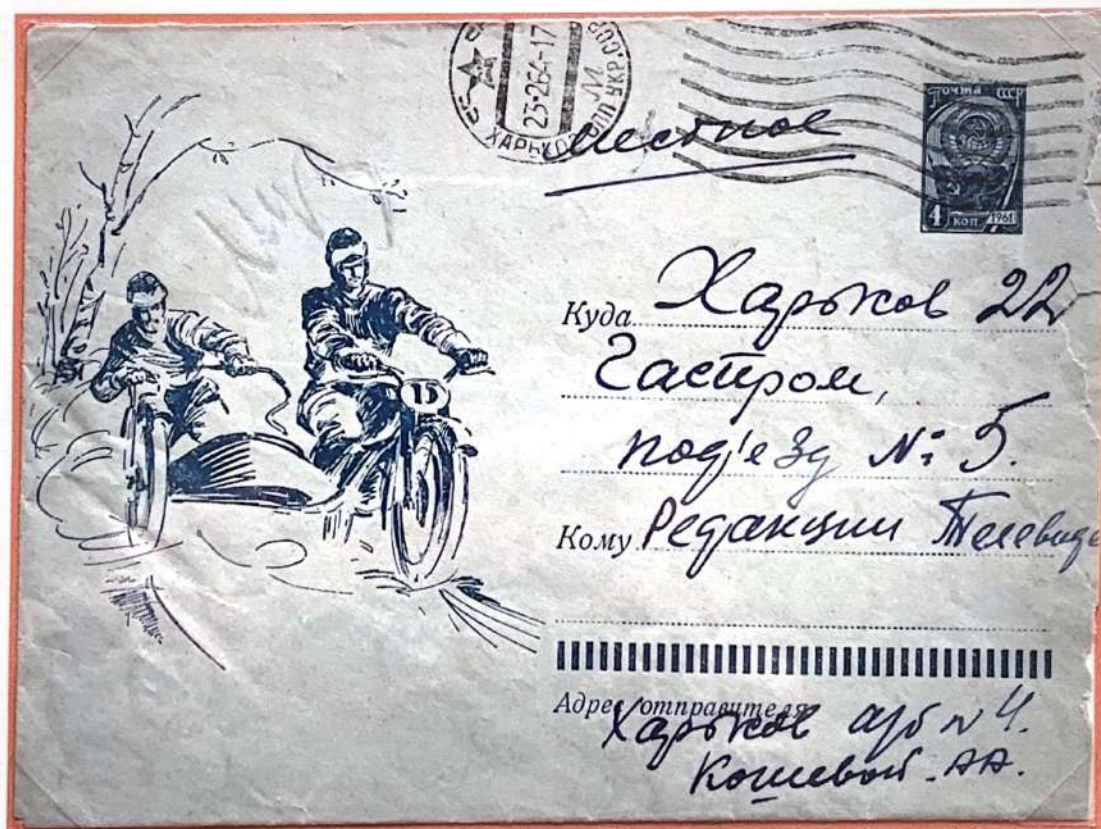 ХАРЬКО
23-264-17
УКР.ССР
М
Местное
ПОЧТА СССР
4 КОП. 1961
15
Куда Харьков 22
Госпром,
под'езд № 5.
Кому Редакции Телевиде
Адрес отправителя:
Харьков
Кошевой А.А.